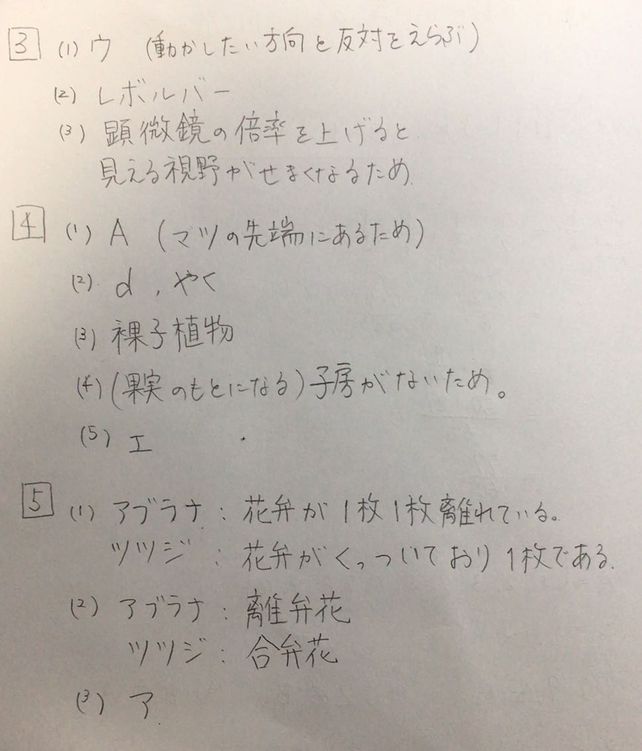 3 (1) ウ (動かしたい方向と反対をえらぶ)
(2) レボルバー
(3) 顕微鏡の倍率を上げると
見える視野がせまくなるため.
4 (1) A (マツの先端にあるため)
(2) d, やく
(3) 裸子植物
(4) (果実のもとになる)子房がないため。
(5) エ
5 (1) アブラナ: 花弁が1枚1枚離れている。
ツツジ: 花弁がくっついており1枚である.
(2) アブラナ: 離弁花
ツツジ: 合弁花
(3) ア